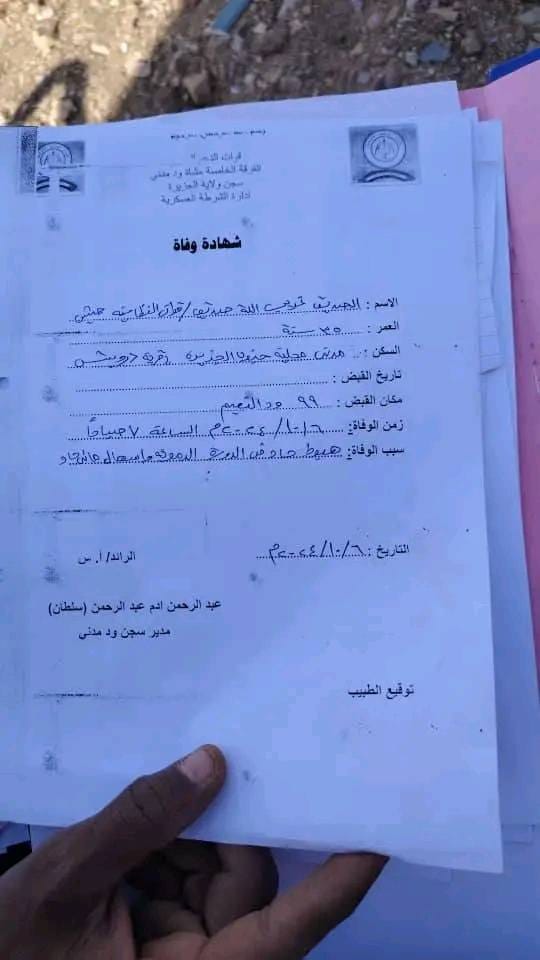 قوات الدعم
الفرقة الخامسة مشاة ود مدني
سجن ولاية الجزيرة
ادارة الشرطة العسكرية
شهادة وفاة
الاسم : الصديق عوض الله صديق /
العمر : ٣٥ سنة
السكن : مدني محلية جنوب الجزيرة قرية درويش
تاريخ القبض :
مكان القبض : ٩٩ ود النعيم
زمن الوفاة: ٢٠٢٤/١٠/٦م الساعة ٧ صباحاً
سبب الوفاة: هبوط حاد في الدورة الدموية واسهال مائي حاد
التاريخ : ٢٠٢٤/١٠/٦م
الرائد/ أ. س
عبد الرحمن ادم عبد الرحمن (سلطان)
مدير سجن ود مدني
توقيع الطبيب